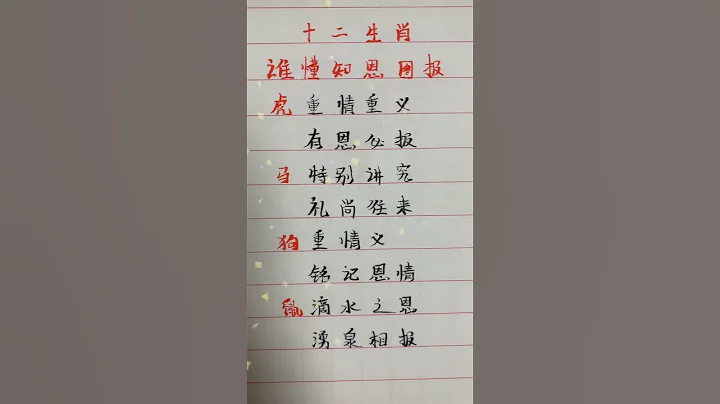 十二生肖
谁懂知恩图报
虎重情重义
有恩必报
马特别讲究
礼尚往来
狗重情义
铭记恩情
鼠滴水之恩
涌泉相报